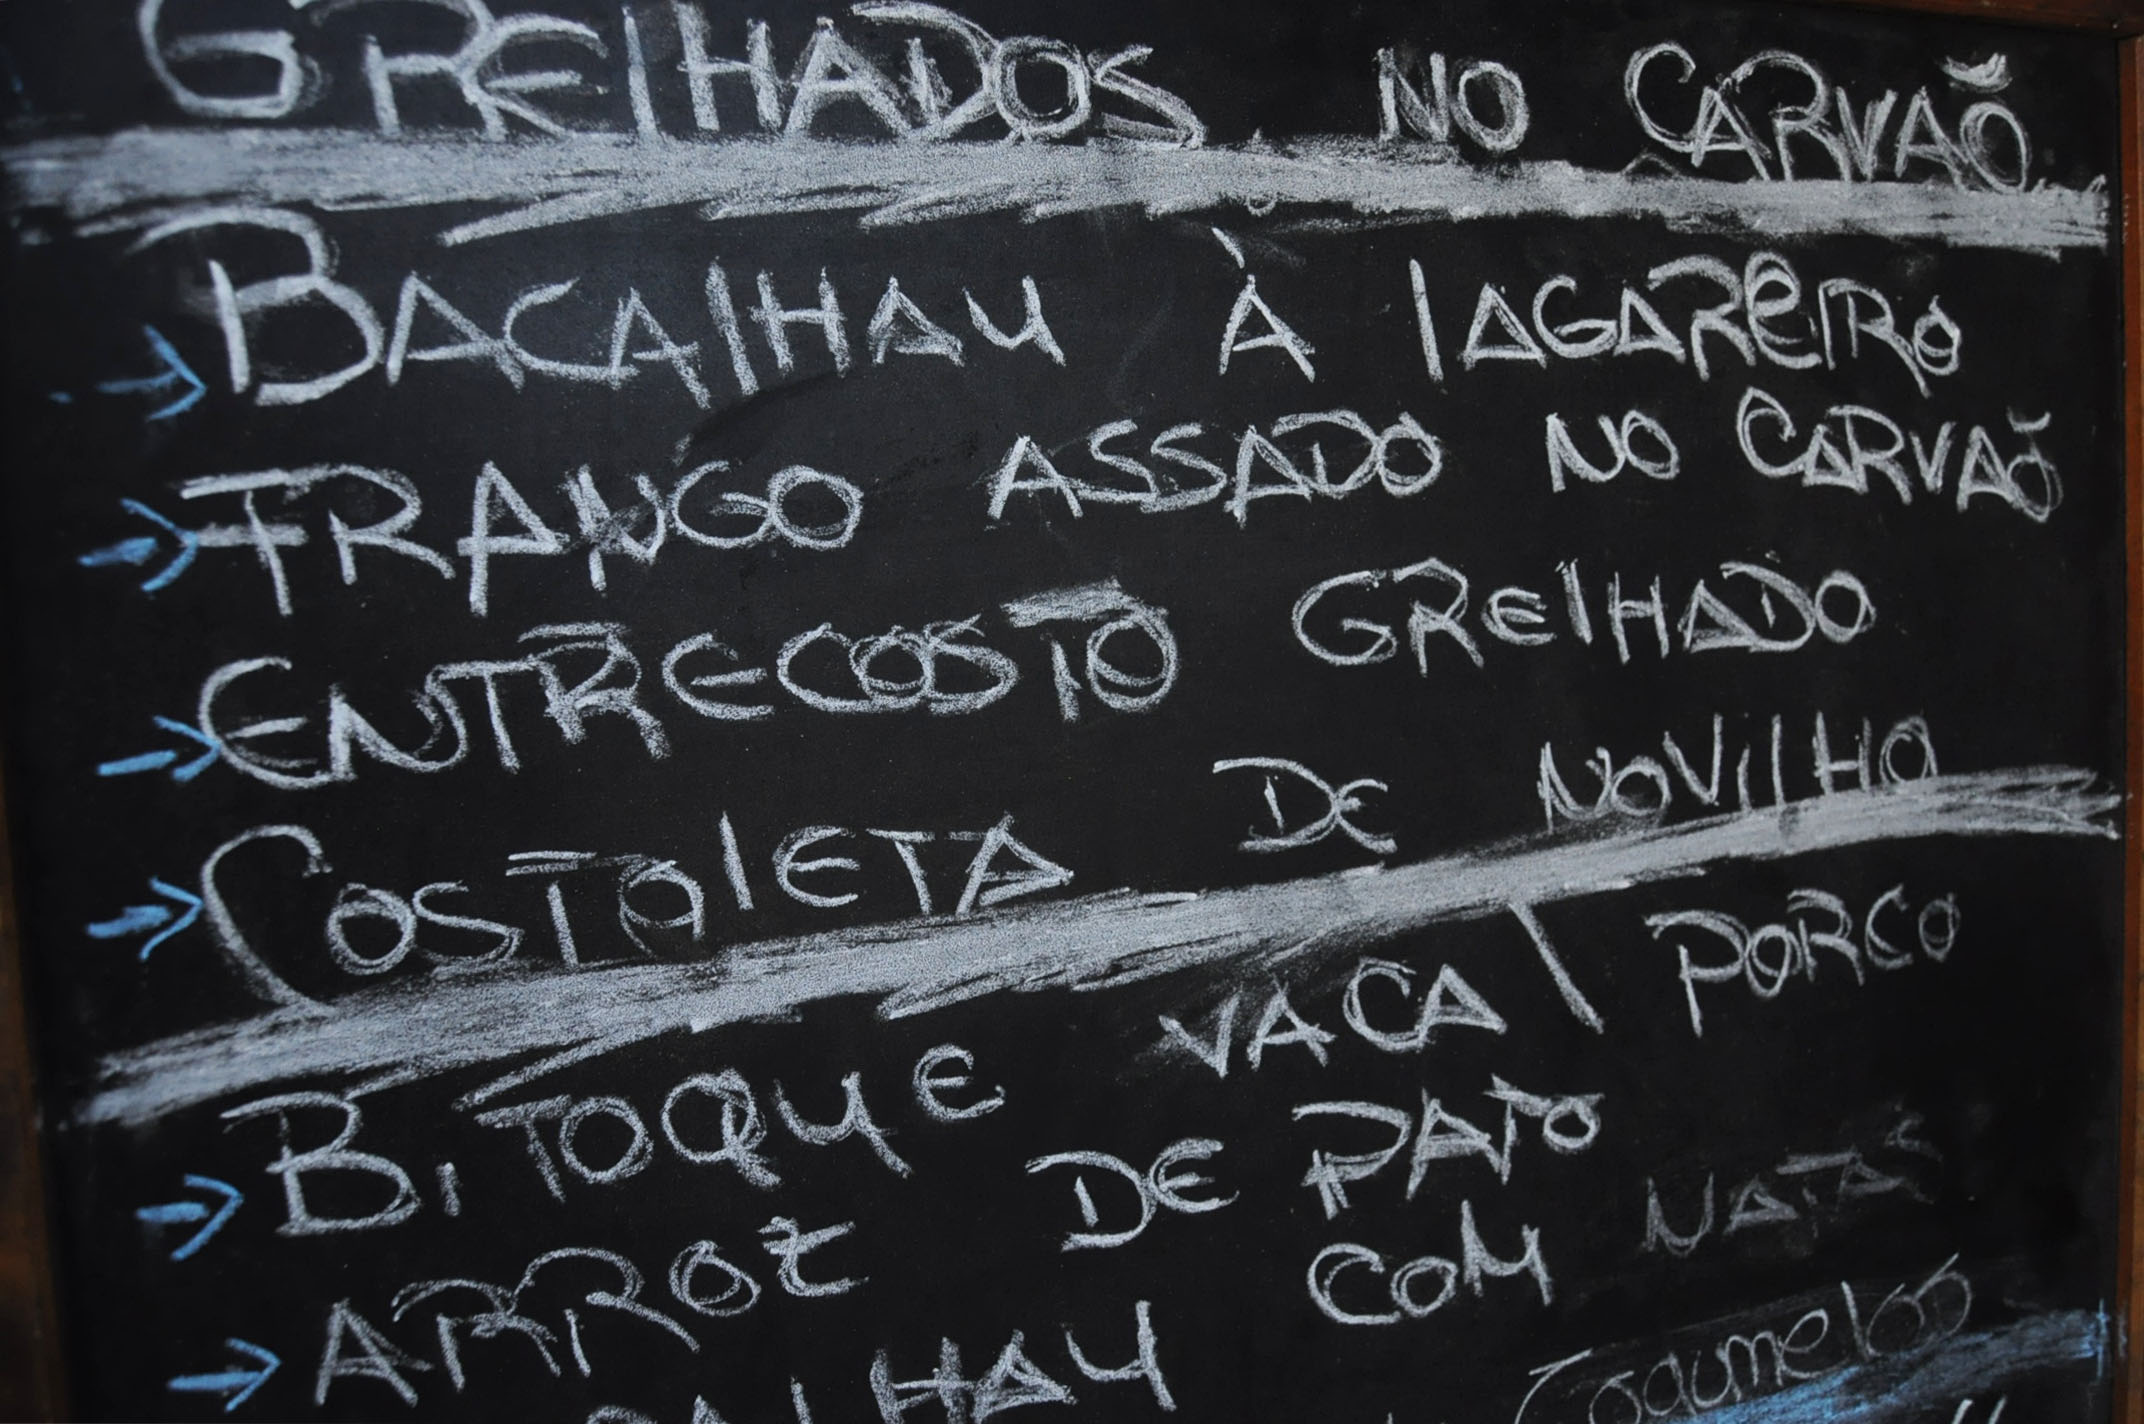 GRElHADOS NO CARVAÕ
BACAlHAU À lAGAReIRO
FRANGO ASSADO NO CARVAÕ
ENTRECOSTO GRElHADO
COSTOlETA DE NOVilHO
BiTOQUE VACA \ PORCO
ARROZ DE PATO
COM NATAS
Cogumelos